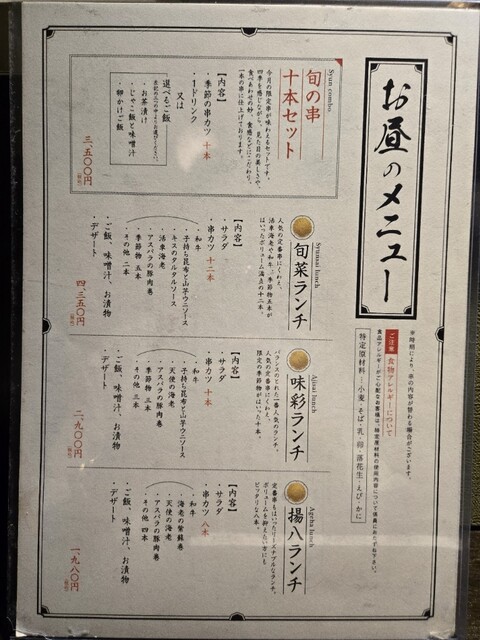 お昼のメニュー
※時期により、串の内容が替わる場合がございます。
ご注意 食物アレルギーについて
特定原材料…小麦・そば・乳・卵・落花生・えび・かに
Syun combo
旬の串
十本セット
今月の限定串が味わえるセットです。
四季を感じながら、見た目の美しさや、
食べあわせの妙、食感などにこだわり、
一本の串に仕上げております。
【内容】
・季節の串カツ 十本
・1ドリンク
又は
選べるご飯
・お茶漬け
・じゃこ飯と味噌汁
・卵かけご飯
三、五〇〇円
Syunsai lunch
旬菜ランチ
人気の定番串にくわえ、
活車海老や和牛、季節物五本が
はいったボリューム満点の十二本。
【内容】
・サラダ
・串カツ 十二本
・和牛
・子持ち昆布と山芋ウニソース
・キスのタルタルソース
・活車海老
・アスパラの豚肉巻
・季節物 五本
・その他 二本
・ご飯、味噌汁、お漬物
・デザート
四、三五〇円
Ajisai lunch
味彩ランチ
バランスのとれた一番人気のランチ。
人気の定番串にくわえ、
限定の季節物がはいった十本。
【内容】
・サラダ
・串カツ 十本
・和牛
・子持ち昆布と山芋ウニソース
・天使の海老
・アスパラの豚肉巻
・季節物 三本
・その他 三本
・ご飯、味噌汁、お漬物
・デザート
二、九〇〇円
Ageha lunch
揚八ランチ
定番串もはいったリーズナブルなランチ。
ボリュームを抑えたい方にも
ピッタリな八本。
【内容】
・サラダ
・串カツ 八本
・和牛
・海老の紫蘇巻
・天使の海老
・アスパラの豚肉巻
・その他 四本
・ご飯、味噌汁、お漬物
・デザート
一、九八〇円